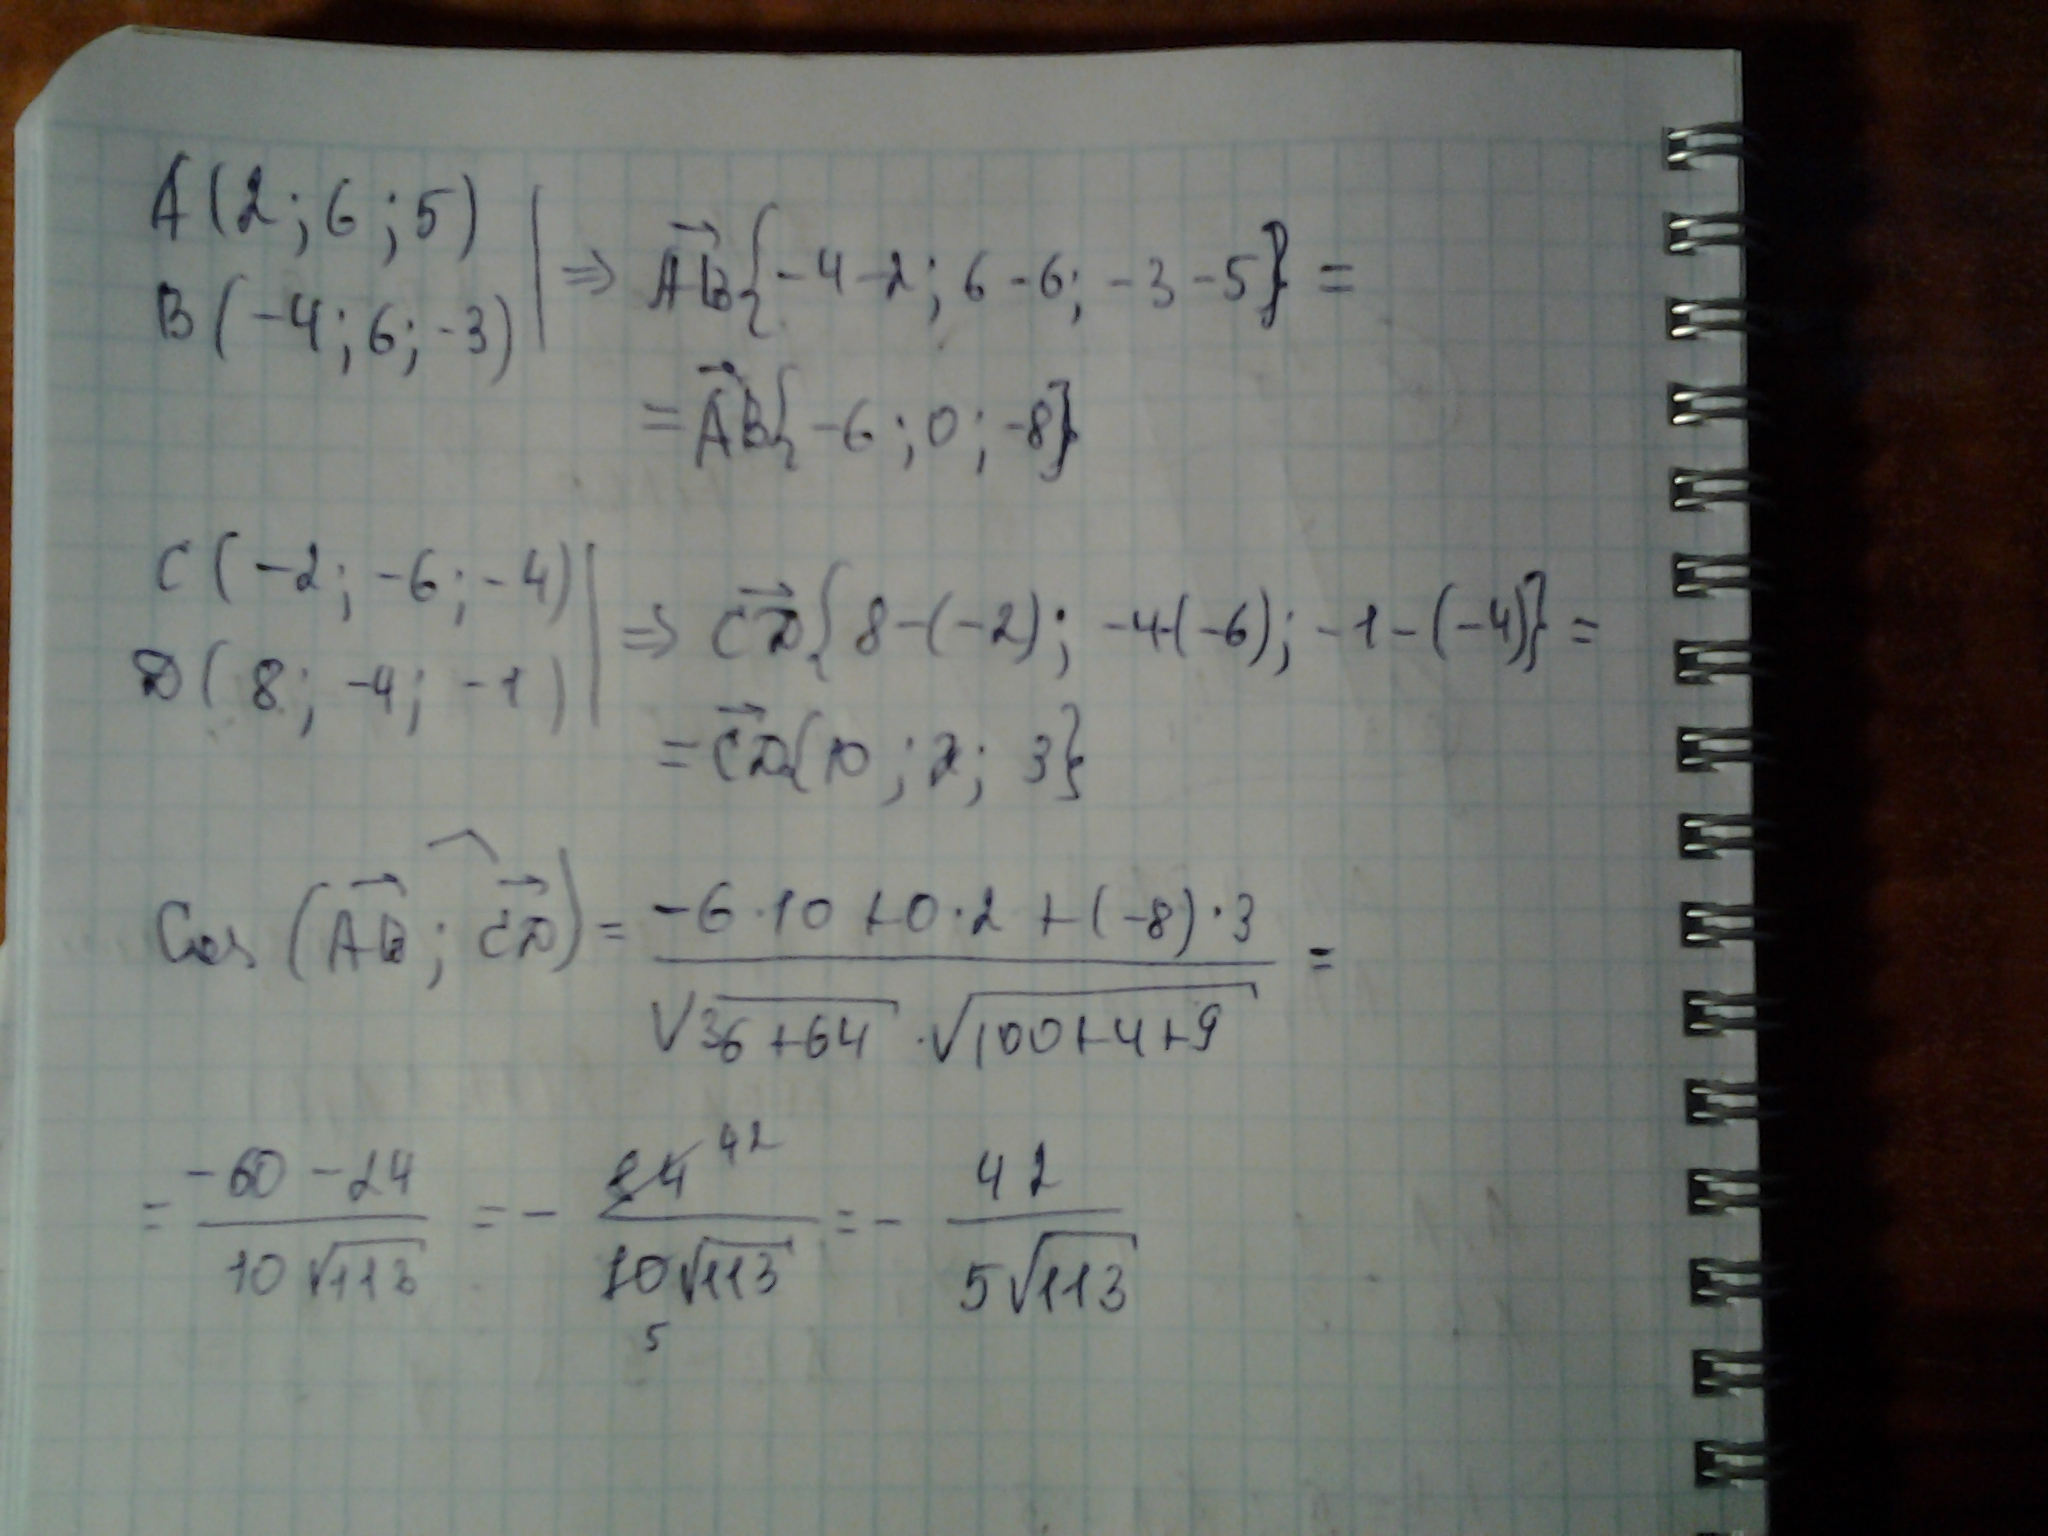 A(2;6;5)
B(-4;6;-3) | ⇒ AB⃗{-4-2; 6-6; -3-5} =
= AB⃗{-6; 0; -8}
C(-2; -6; -4)
D(8; -4; -1) | ⇒ CD⃗{8-(-2); -4-(-6); -1-(-4)} =
= CD⃗{10; 2; 3}
Cos(AB⃗; CD⃗) = (-6·10+0·2+(-8)·3)/(√(36+64)·√(100+4+9)) =
= (-60-24)/(10√113) = - 84 42/(10√113) 5 = - 42/(5√113)